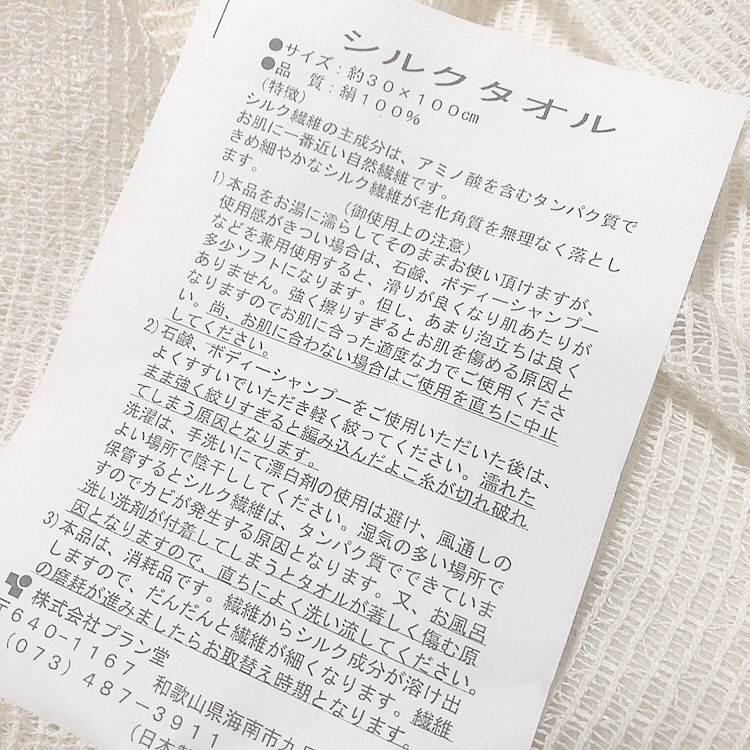 シルクタオル
●サイズ：約30×100㎝
●品　質：絹100%
(特徴)
シルク繊維の主成分は、アミノ酸を含むタンパク質で
お肌に一番近い自然繊維です。
きめ細やかなシルク繊維が老化角質を無理なく落とし
ます。
(御使用上の注意)
1)本品をお湯に濡らしてそのままお使い頂けますが、
使用感がきつい場合は、石鹸、ボディーシャンプー
などを兼用使用すると、滑りが良くなり肌あたりが
多少ソフトになります。但し、あまり泡立ちは良く
ありません。強く擦りすぎるとお肌を傷める原因と
なりますのでお肌に合った適度な力でご使用くださ
い。尚、お肌に合わない場合はご使用を直ちに中止
してください。
2)石鹸、ボディーシャンプーをご使用いただいた後は、
よくすすいでいただき軽く絞ってください。濡れた
まま強く絞りすぎると編み込んだよこ糸が切れ破れ
てしまう原因となります。
洗濯は、手洗いにて漂白剤の使用は避け、風通しの
よい場所で陰干ししてください。湿気の多い場所で
保管するとシルク繊維は、タンパク質でできていま
すのでカビが発生する原因となります。又、お風呂
洗い洗剤が付着してしまうとタオルが著しく傷む原
因となりますので、直ちによく洗い流してください。
3)本品は、消耗品です。繊維からシルク成分が溶け出
しますので、だんだんと繊維が細くなります。繊維
の磨耗が進みましたらお取替え時期となります。
株式会社プラン堂
〒640-1167 和歌山県海南市九
(073)487-3911
(日本製